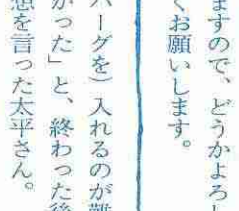 ますので、どうかよろし
くお願いします。
バーグを）入れるのが難
かった」と、終わった後
想を言った太平さん。